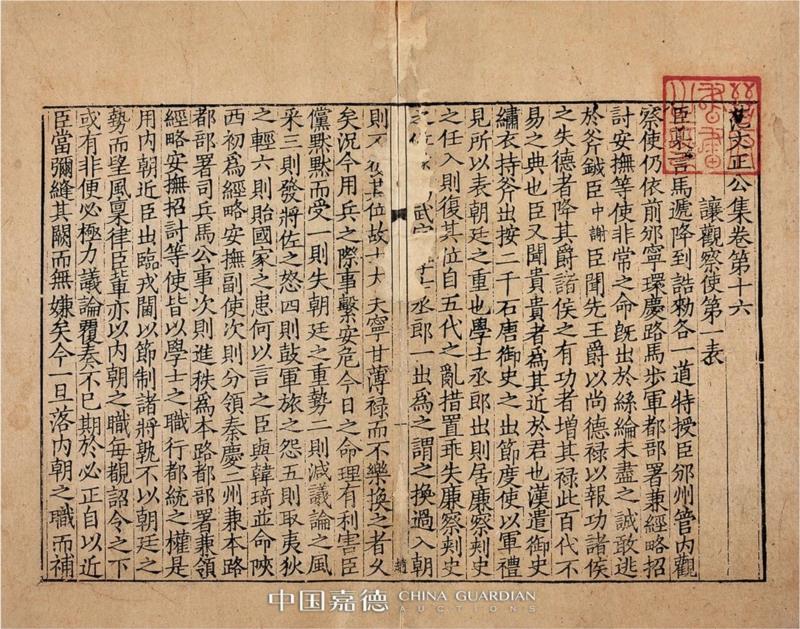 范文正公集卷第十六
讓觀察使第一表
臣某言馬遞降到誥勑各一道特授臣邠州管內觀
察使仍依前邠寧環慶路馬步軍都部署兼經略招
討安撫等使非常之命旣出於絲綸未盡之誠敢逃
於斧鉞臣中謝臣聞先王爵以尚德祿以報功諸侯
之失德者降其爵諸侯之有功者增其祿此百代不
易之典也臣又聞貴貴者爲其近於君也漢遣御史
繡衣持斧出按二千石唐御史之出節度使以軍禮
見所以表朝廷之重也學士丞郎出則居廉察刾史
之任入則復其位自五代之亂措置乖失廉察刾史
武 丞郎一出爲之謂之換過入朝
則 其位故士大夫寧甘薄祿而不樂換之者久
矣況今用兵之際事繫安危今日之命理有利害臣
儻默默而受一則失朝廷之重勢二則減議論之風
采三則發將佐之怒四則鼓軍旅之怨五則取夷狄
之輕六則貽國家之患何以言之臣與韓琦並命陝
西初爲經略安撫副使次則分領秦慶二州兼本路
都部署司兵馬公事次則進秩爲本路都部署兼領
經略安撫招討等使皆以學士之職行都統之權是
用內朝近臣出臨戎閫以節制諸將孰不以朝廷之
勢而望風稟律臣輩亦以內朝之職每覩詔令之下
或有非便必極力議論覆奏不已期於必正自以近
臣當彌縫其闕而無嫌矣今一旦落內朝之職而補
中国嘉德 CHINA GUARDIAN
AUCTIONS